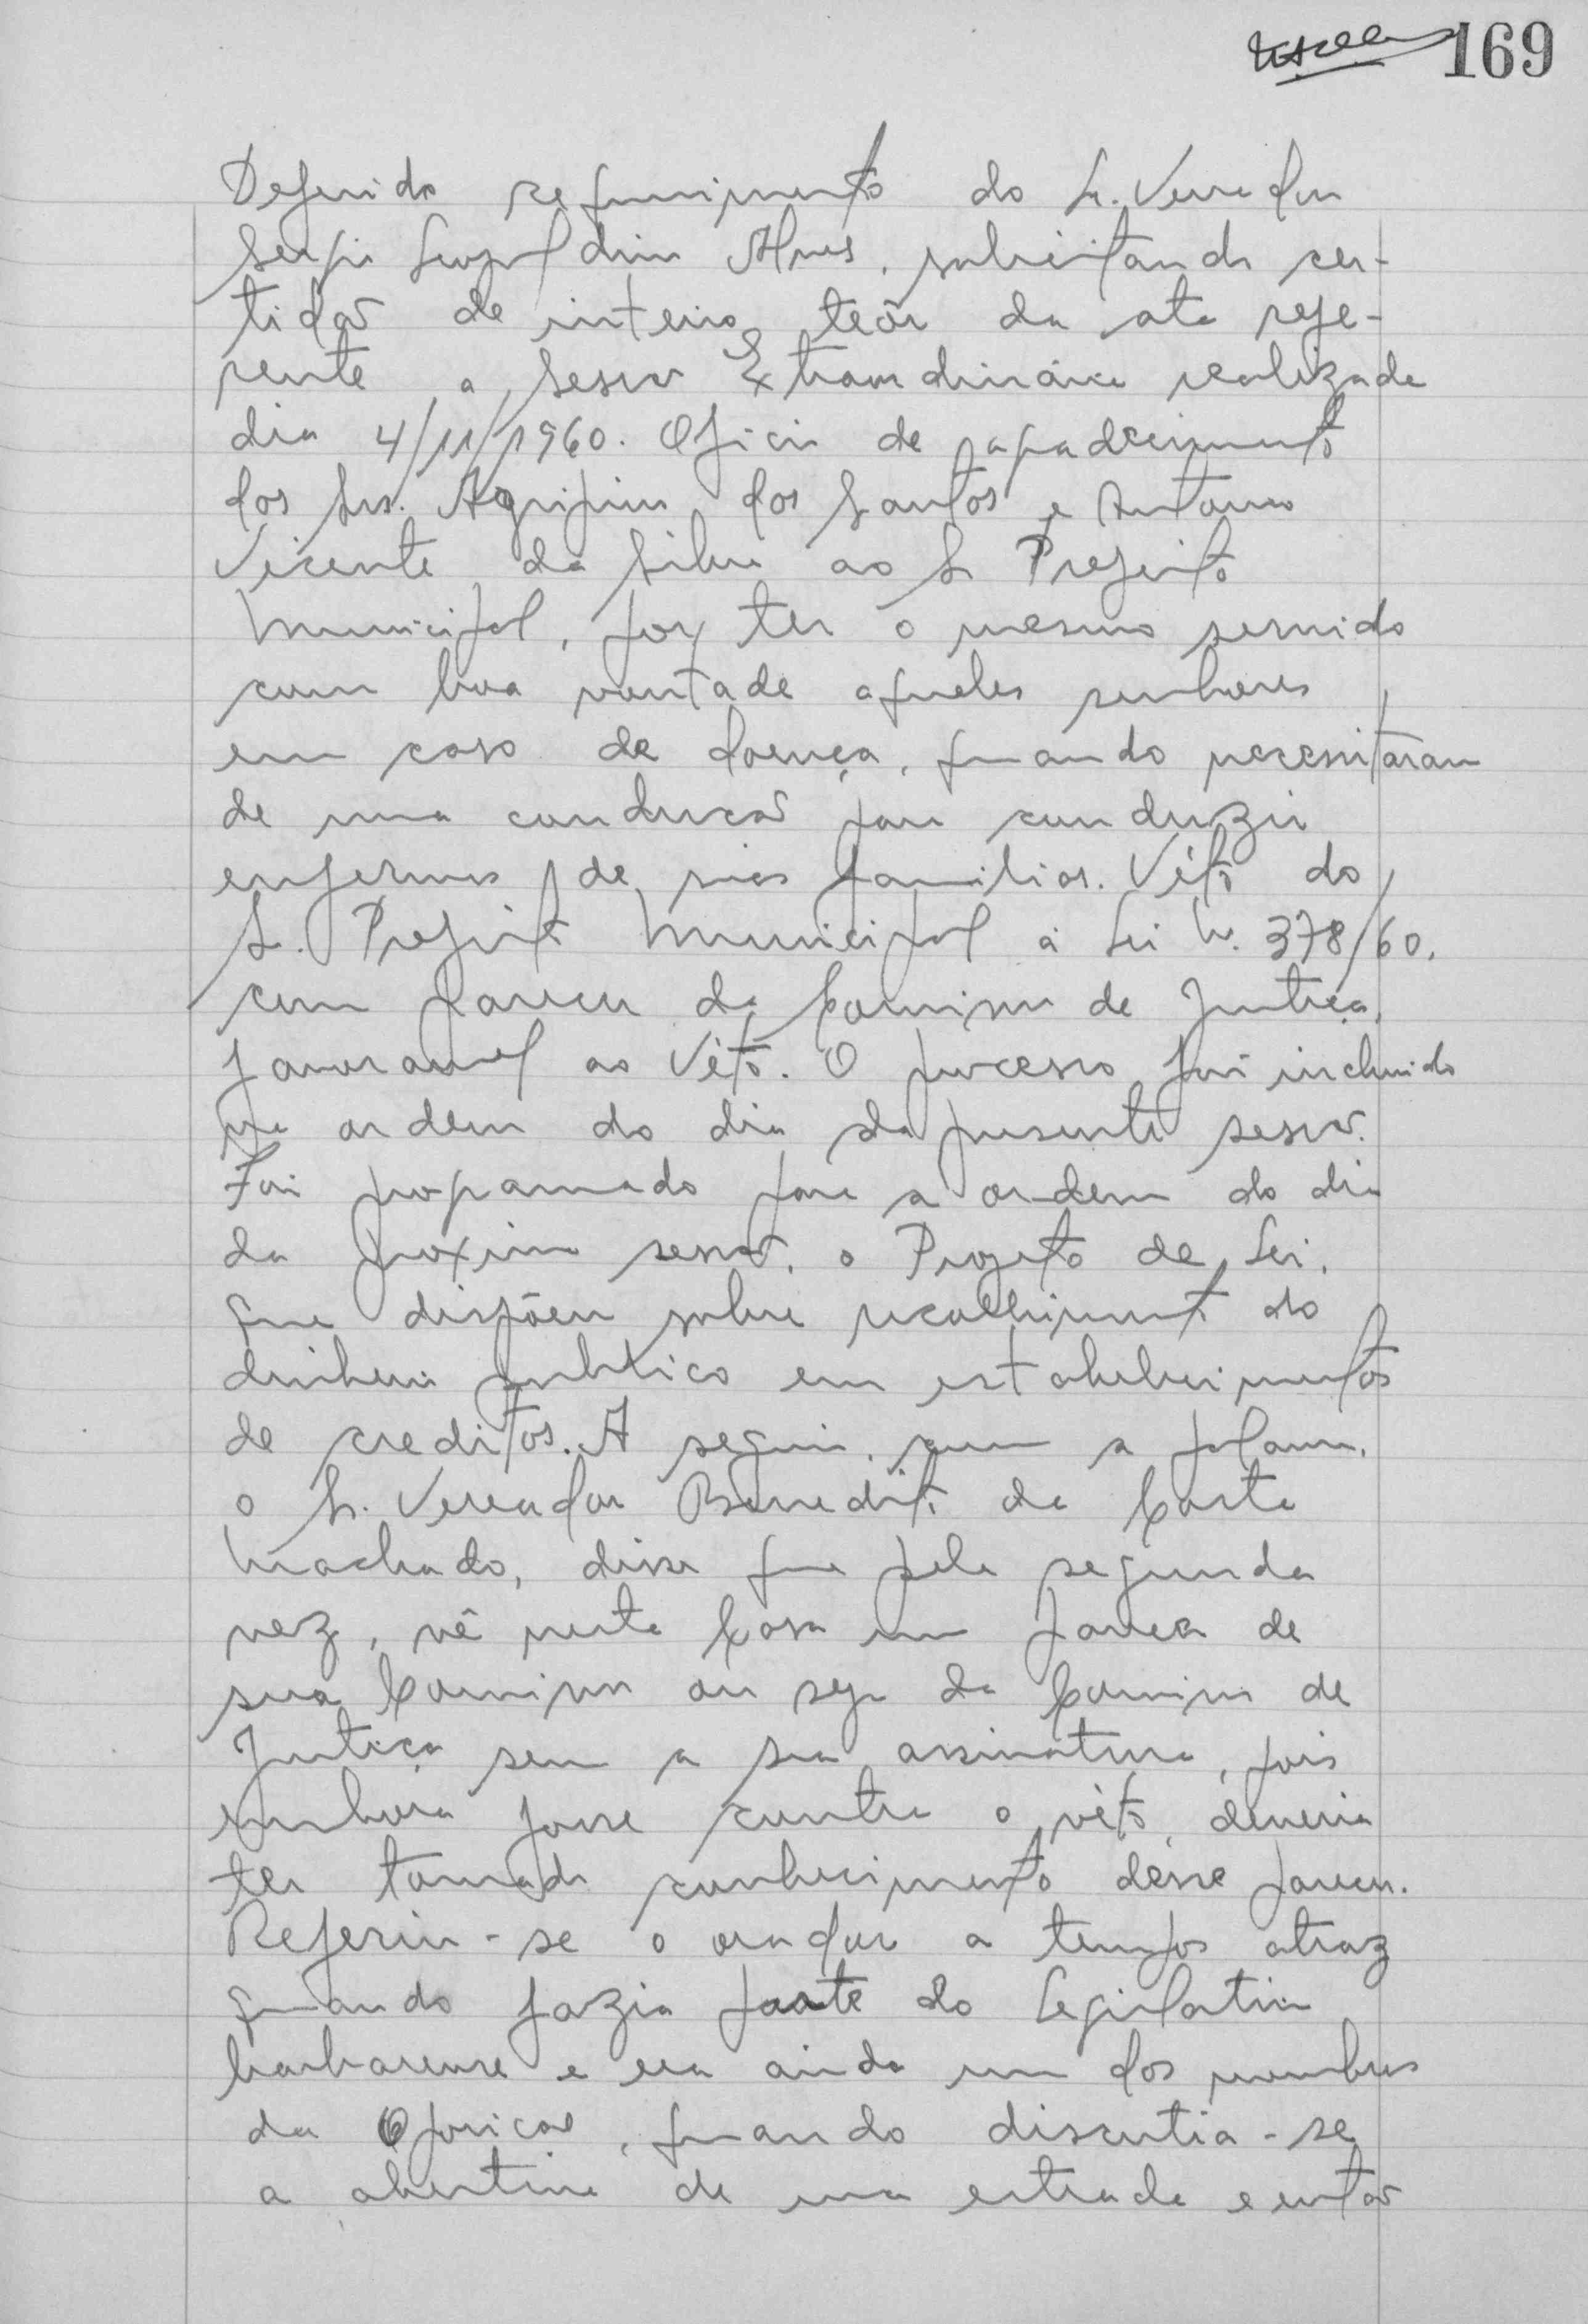 169
Deferido requerimento do Sr. Vereador
Sergio Leopoldino Alves, solicitando cer-
tidão de inteiro teôr da ata refe-
rente a Sessão Extraordinária realizada
dia 4/11/1960. Oficio de agradecimento
dos Srs. Agripino dos Santos e Antonio
Vicente da Silva ao Sr. Prefeito
Municipal, por ter o mesmo servido
com boa vontade aqueles senhores,
em caso de doença, quando necessitaram
de uma condução para conduzir
enfermos de suas familias. Véto do
Sr. Prefeito Municipal á Lei N. 378/60,
com parecer da Comissão de Justiça,
favoravel ao Véto. O processo foi incluido
na ordem do dia da presente sessão.
Foi programado para a ordem do dia
da proxima sessão, o Projeto de Lei,
que dispõem sobre recolhimento do
dinheiro publico em estabelecimentos
de creditos. A seguir, com a palavra,
o Sr. Vereador Benedito da Costa
Machado, disse que pela segunda
vez, vê nesta Casa um parecer de
sua Comissão ou seja da Comissão de
Justiça sem a sua assinatura, pois
embora fosse contra o véto, deveria
ter tomado conhecimento désse parecer.
Referiu-se o orador a tempos atraz
quando fazia parte do Legislativo
barbarense e era ainda um dos membros
da Oposição, quando discutia-se
a abertura de uma estrada e então